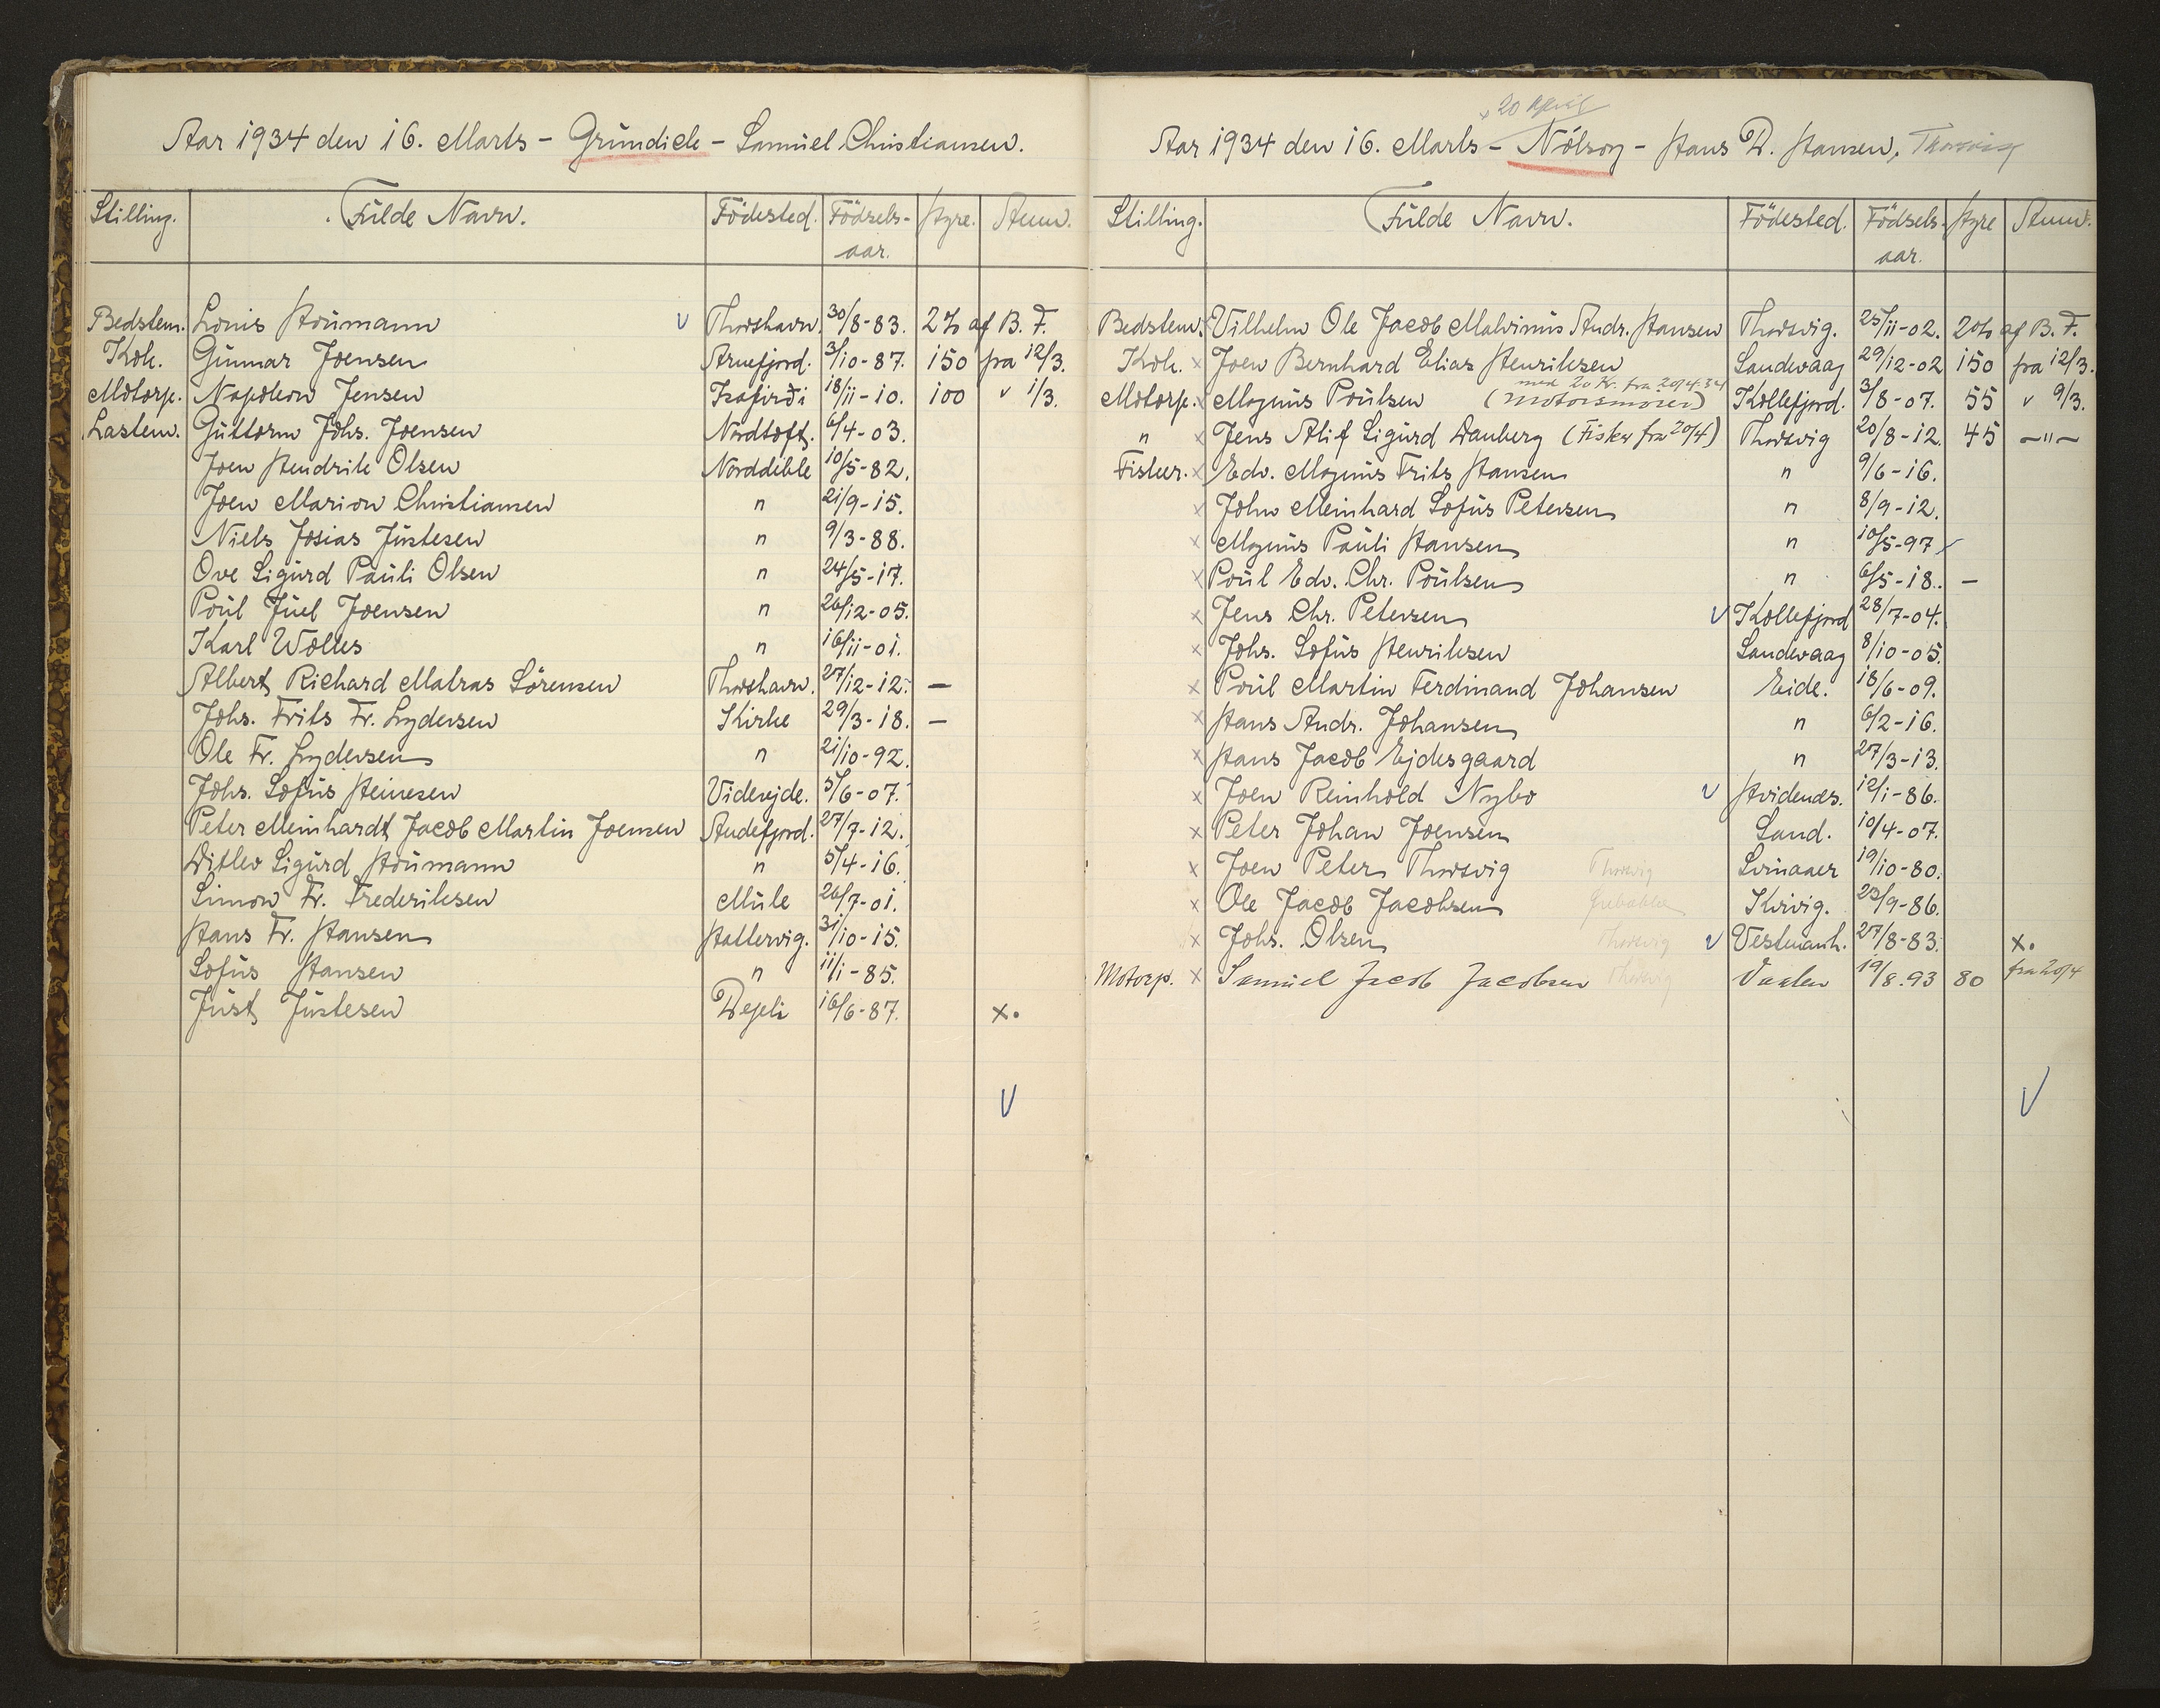 Aar 1934 den 16. Marts - Grundick - Samuel Christiansen.
Stilling. Fulde Navn. Födested. Födsels-aar. Hyre. Anm.
Bedstem. Louis Houmann v Thorshavn. 30/8-83. 2% af B. F.
Kok. Gunnar Joensen Arnefjord. 3/10-87. 150 fra 12/3.
Motorp. Napoleon Jensen Isafirði 18/11-10. 100 " 1/3.
Lastem. Guttorm Johs. Joensen Nordtoft. 6/4-03.
Joen Hendrik Olsen Norddeble 10/5-82.
Joen Marion Christiansen " 21/9-15.
Niels Josias Justesen " 9/3-88.
Ove Sigurd Pauli Olsen " 24/5-17.
Poul Juel Joensen " 26/12-05.
Karl Wolles " 16/11-01.
Albert Richard Matras Sörensen Thorshavn. 27/12-12. -
Johs. Frits Fr. Lydersen Kirke 29/3-18. -
Ole Fr. Lydersen " 21/10-92.
Johs. Sofus Heinesen Viderejde. 5/6-07.
Peter Meinhardt Jacob Martin Joensen Andefjord. 27/7-12.
Ditlev Sigurd Houmann " 5/4-16.
Simon Fr. Frederiksen Mule 26/7-01.
Hans Fr. Hansen Hattervig. 31/10-15.
Sofus Hansen " 11/1-85.
Just Justesen Depli 16/6-87. x.
v
+ 20 April
Aar 1934 den 16. Marts - Nólsoy - Hans D. Hansen, Thorsvig
Stilling. Fulde Navn. Födested. Födsels-aar. Hyre Anm.
Bedstem. x Vilhelm Ole Jacob Malvinus Andr. Hansen Thorsvig. 25/11-02. 2% af B. F.
Kok. x Joen Bernhard Elias Henriksen Sandevaag 29/12-02 150 fra 12/3.
med 20 Kr. fra 20/4.34
Motorp. x Magnus Poulsen (Motorsmører) Kollefjord. 3/8-07. 55 " 9/3.
" x Jens Alif Sigurd Danberg (Fisker fra 20/4) Thorsvig 20/8-12. 45 -"-
Fisker. x Edv. Magnus Frits Hansen " 9/6-16.
x John Meinhard Sofus Petersen " 8/9-12.
x Magnus Pauli Hansen " 10/5-97
x Poul Edv. Chr. Poulsen " 6/5-18. -
x Jens Chr. Petersen v Kollefjord 28/7-04.
x Johs. Sofus Henriksen Sandevaag 8/10-05.
x Poul Martin Ferdinand Johansen Eide. 18/6-09.
x Hans Andr. Johansen " 6/2-16.
x Hans Jacob Ejdesgaard " 27/3-13.
x Joen Reinhold Nybo v Hvidenæs. 12/1-86.
x Peter Johan Joensen Sand. 10/4-07.
x Joen Peter Thorsvig Thorsvig Svinaaer 19/10-80.
x Ole Jacob Jacobsen Kvivig. 23/9-86.
x Johs. Olsen Thorsvig v Vestmanh. 27/8-83. x.
Motorp. x Samuel Jacob Jacobsen Thorsvig Vaalen 19/8.93 80 fra 20/4
v